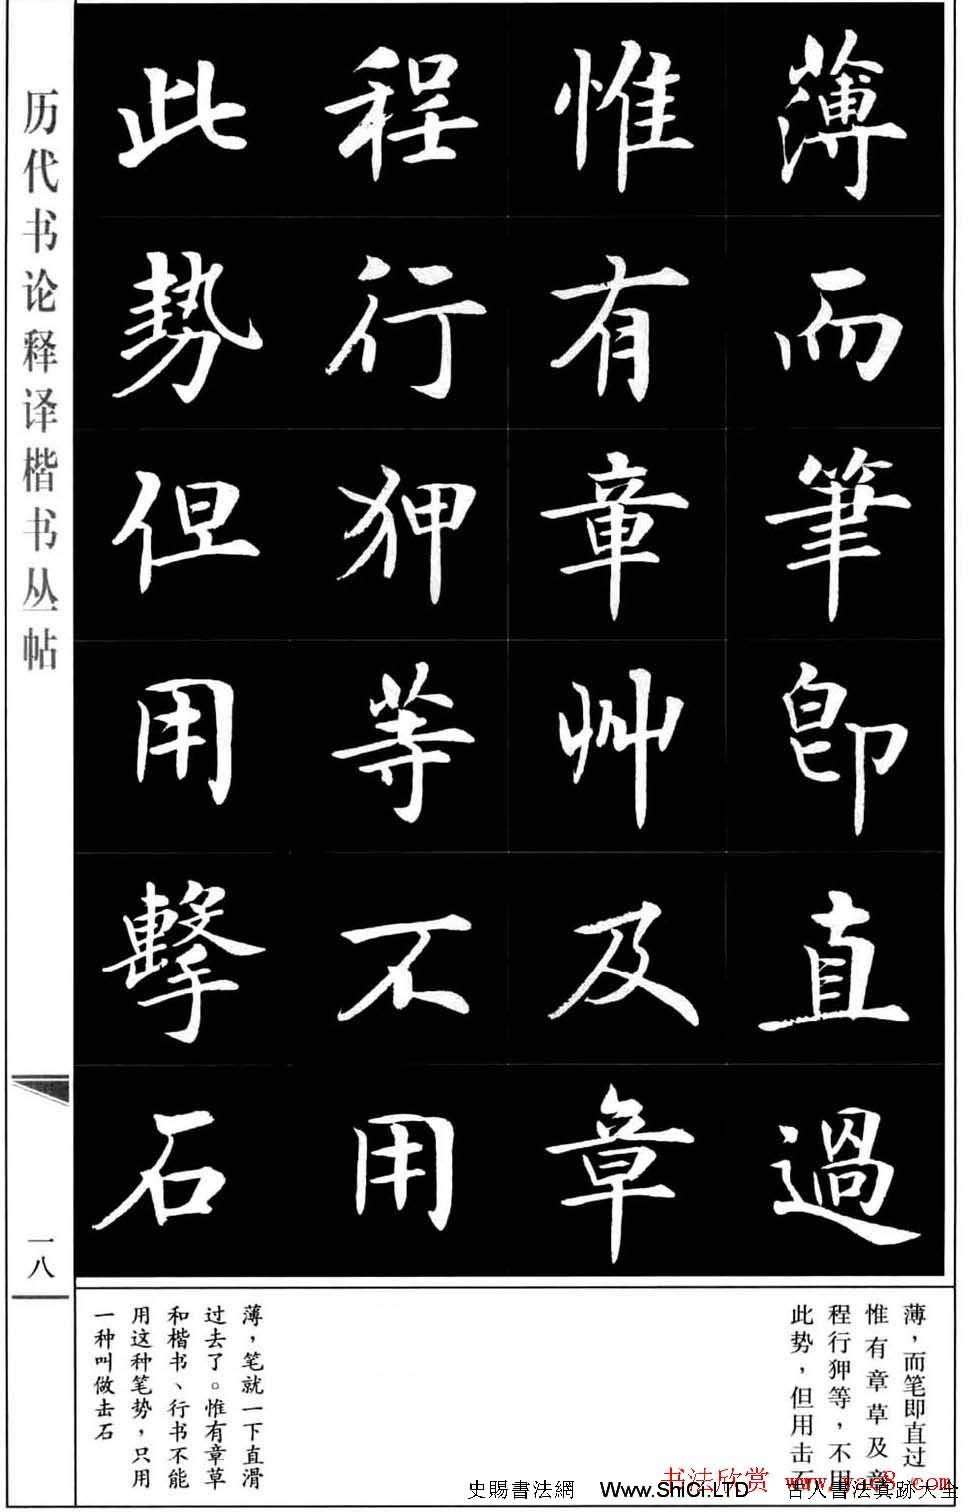 薄而筆即直過
惟有章艸及章
程行狎等不用
此勢但用擊石
历代书论释译楷书丛帖
一八
薄，而笔即直过
惟有章草及章
程行狎等，不用
此势，但用击石
薄，笔就一下直滑
过去了。惟有章草
和楷书、行书不能
用这种笔势，只用
一种叫做击石
书法欣赏
史賜書法網 Www.ShiCi.LTD 古人書法真跡大全